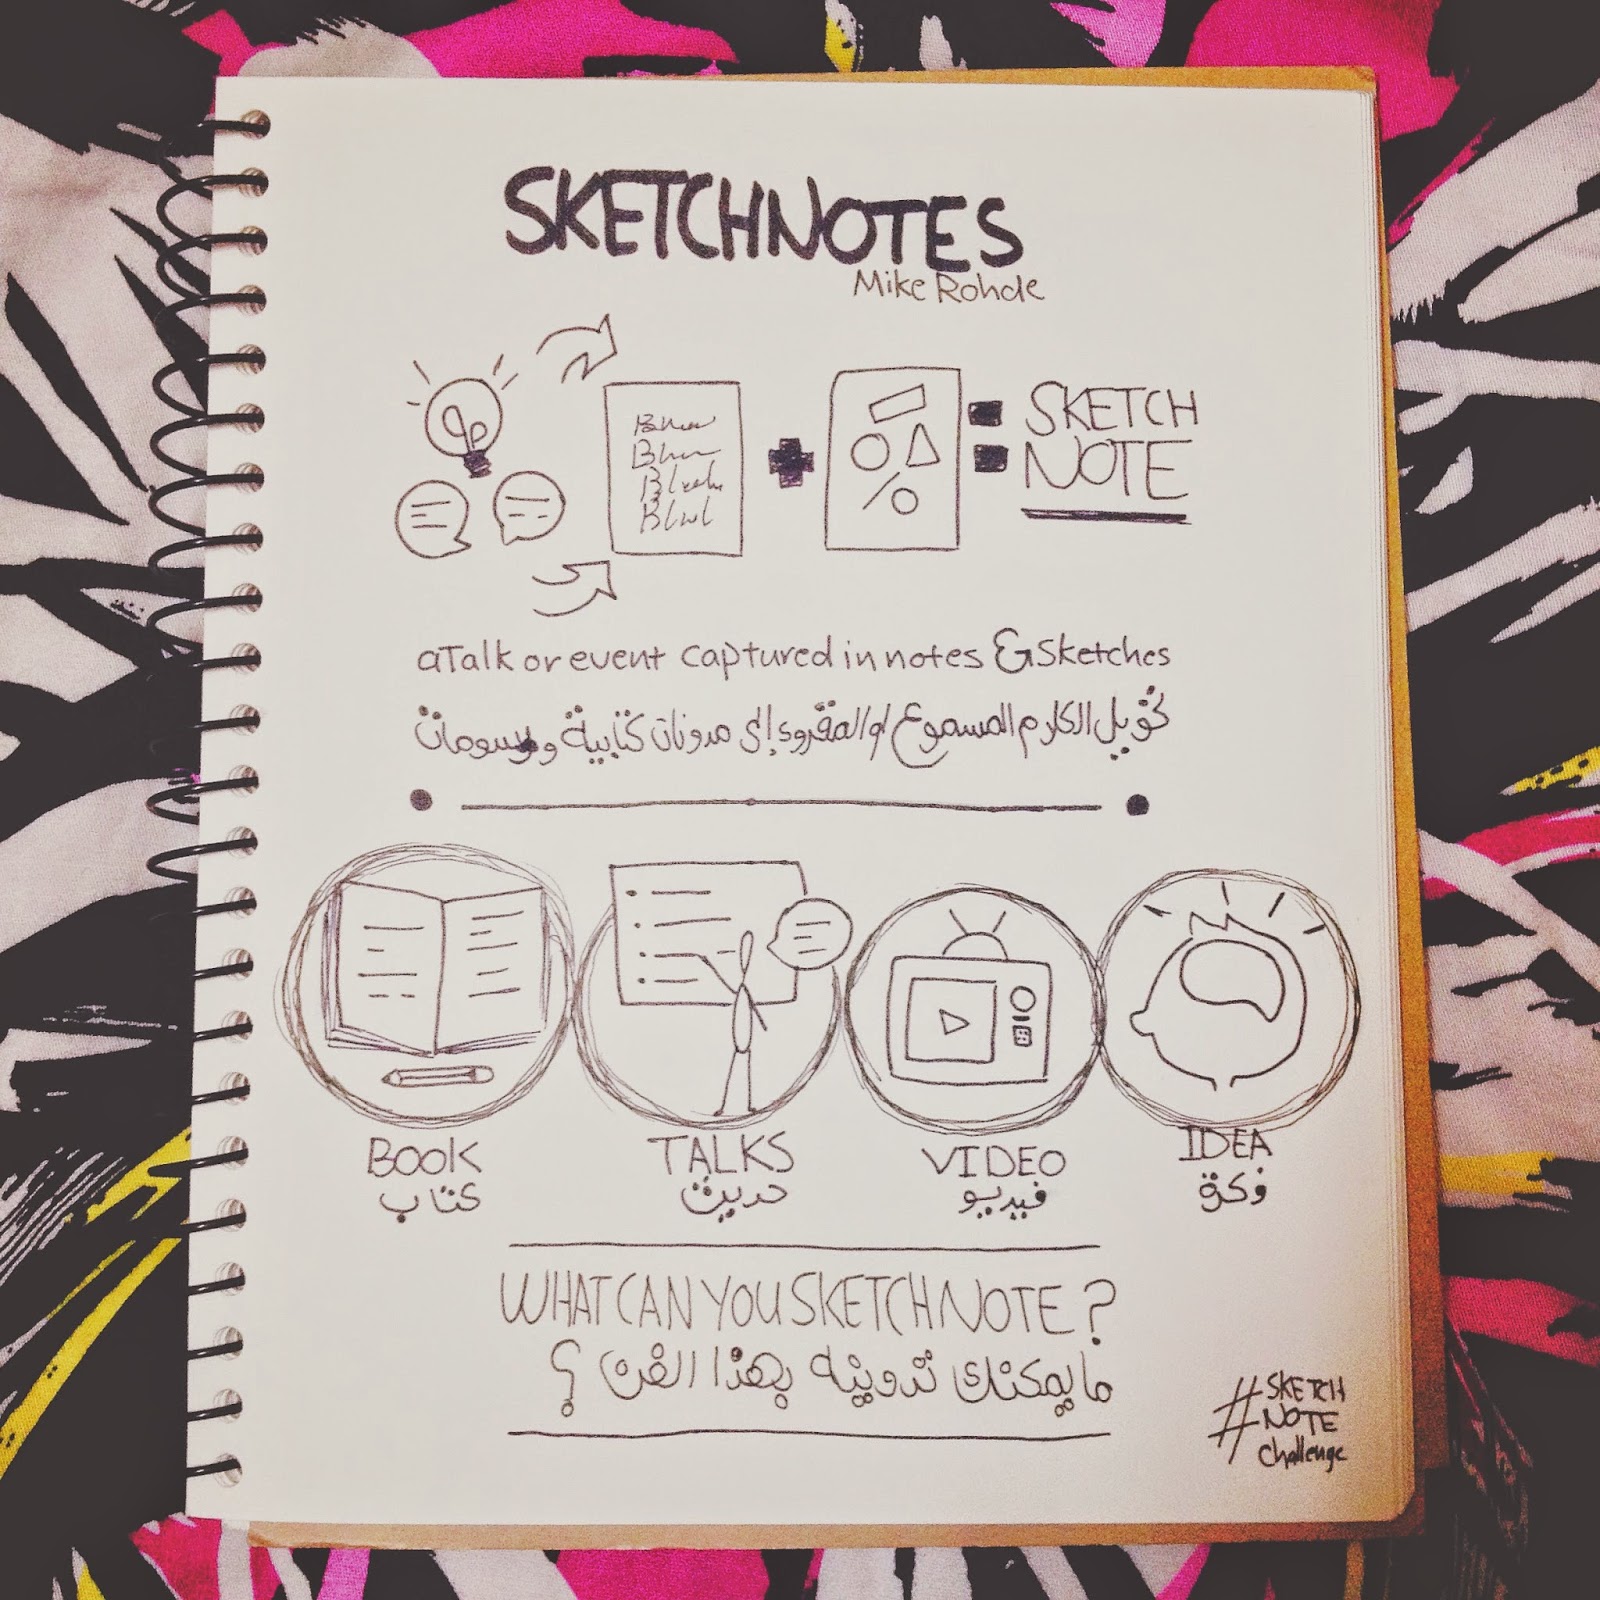 SKETCHNOTES
Mike Rohde
SKETCH
NOTE
a Talk or event captured in notes & Sketches
تحويل الكلام المسموع او المقروء إلى مدونات كتابية ورسومات
BOOK
كتاب
TALKS
حديث
VIDEO
فيديو
IDEA
فكرة
WHAT CAN YOU SKETCHNOTE?
ما يمكنك تدوينه بهذا الفن ؟
#SKETCH
NOTE
challenge